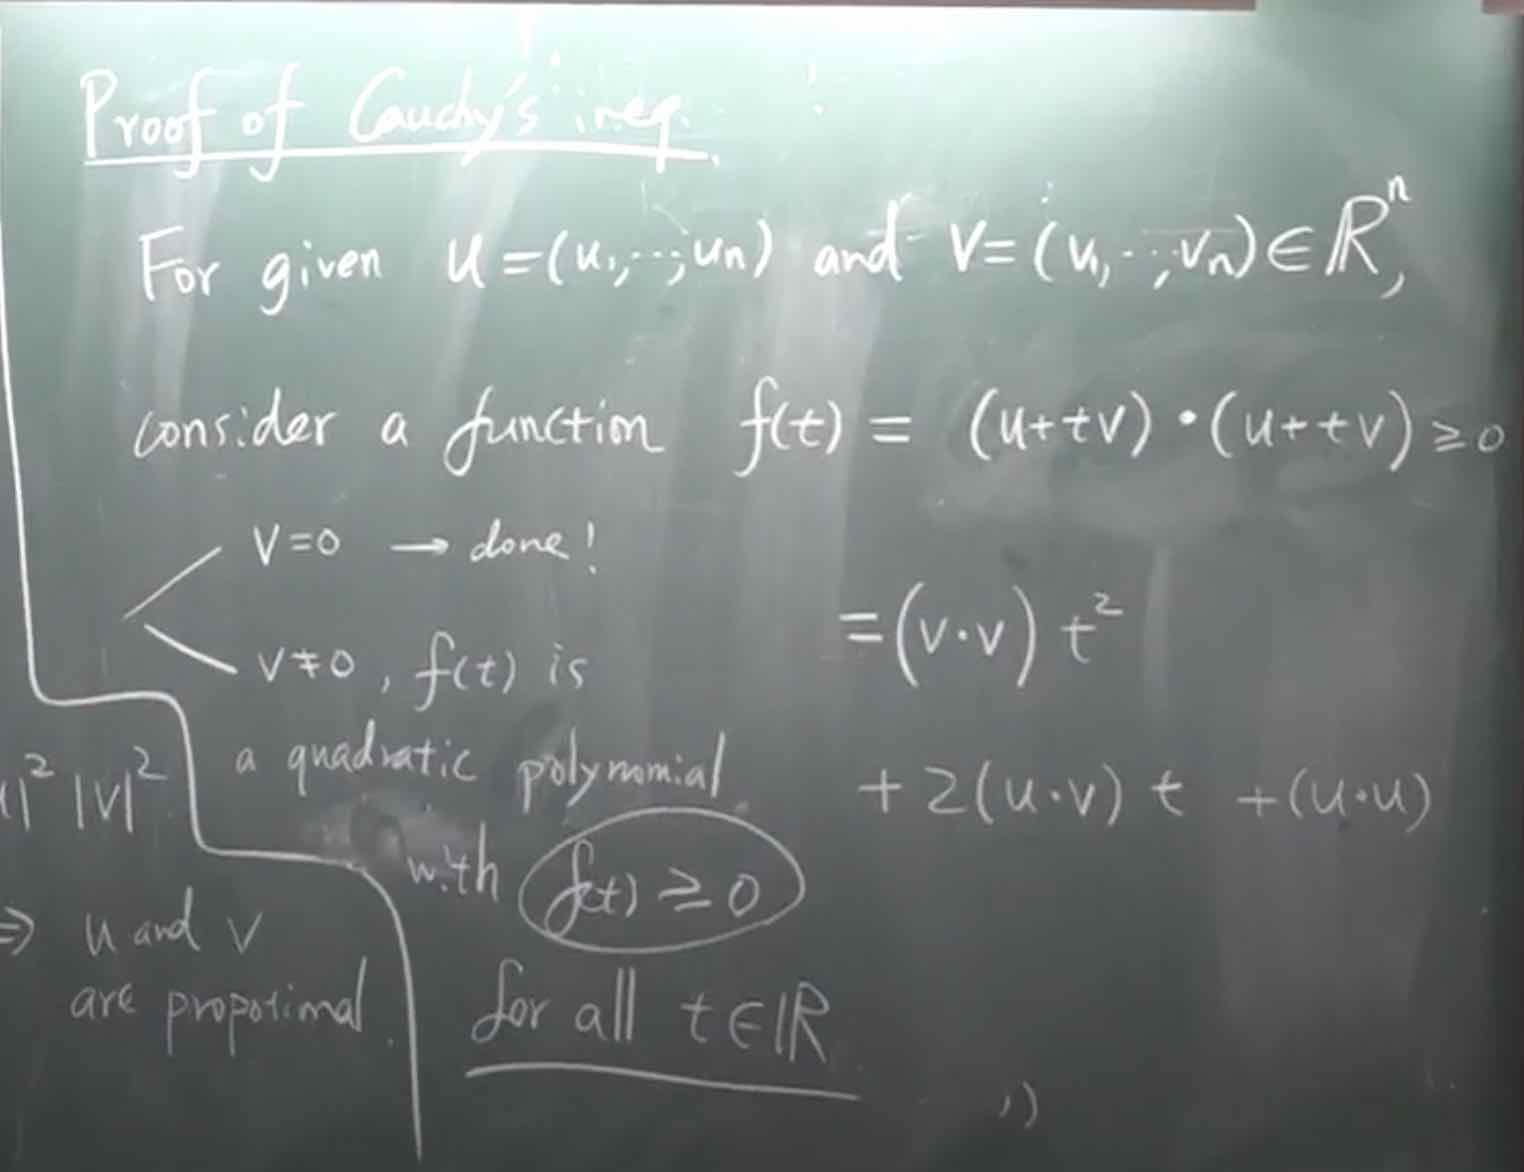 Proof of Cauchy's ineq.
For given u = (u₁, ..., uₙ) and v = (v₁, ..., vₙ) ∈ ℝⁿ,
consider a function f(t) = (u+tv)·(u+tv) ≥ 0
v=0 → done!
v≠0, f(t) is
a quadratic polynomial
with f(t) ≥ 0
for all t∈ℝ
= (v·v) t²
+ 2(u·v) t + (u·u)
|² |v|²
⇒ u and v
are propotional.